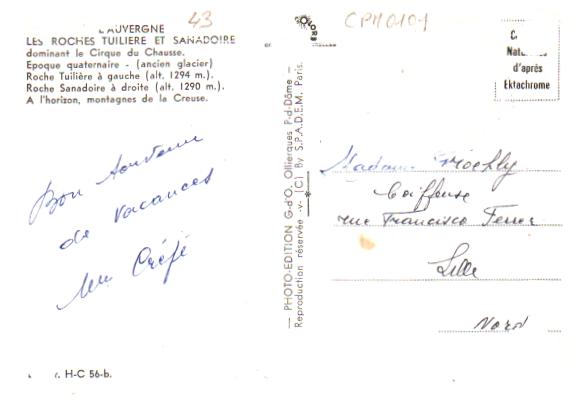 43
L'AUVERGNE
LES ROCHES TUILIERE ET SANADOIRE
dominant le Cirque du Chausse.
Epoque quaternaire - (ancien glacier)
Roche Tuilière à gauche (alt. 1294 m.).
Roche Sanadoire à droite (alt. 1290 m.).
A l'horizon, montagnes de la Creuse.
Bon souvenir
de vacances
H-C 56-b.
— PHOTO-EDITION G-d'O. Ollierques P-d-Dôme —
Reproduction réservée -v- (C) By S.P.A.D.E.M. Paris.
CPM0101
d'après
Ektachrome
Madame
Coiffeuse
rue Francisco Ferrer
Lille
Nord